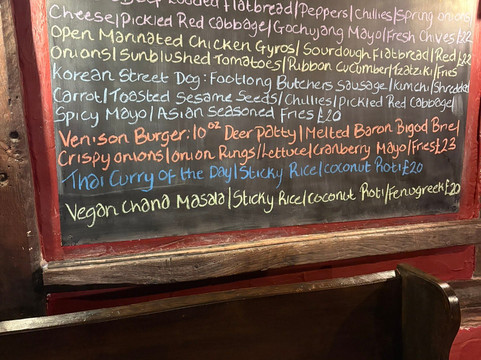 Loaded Flatbread/Peppers/Chillies/Spring onions
Cheese/Pickled Red cabbage/Gochujang Mayo/Fresh Chives £22
Open Marinated Chicken Gyros/Sourdough Flatbread/Red
Onions/Sunblushed Tomatoes/Ribbon Cucumber/Tzatziki/Fries £22
Korean Street Dog: Footlong Butchers Sausage/Kimchi/Shredded
Carrot/Toasted Sesame Seeds/Chillies/Pickled Red Cabbage/
Spicy Mayo/Asian Seasoned Fries £20
Venison Burger: 10oz Deer Patty/Melted Baron Bigod Brie/
Crispy onions/Onion Rings/Lettuce/Cranberry Mayo/Fries £23
Thai Curry of the Day/Sticky Rice/coconut Roti £20
Vegan Chana Masala/Sticky Rice/coconut Roti/Fenugreek £20